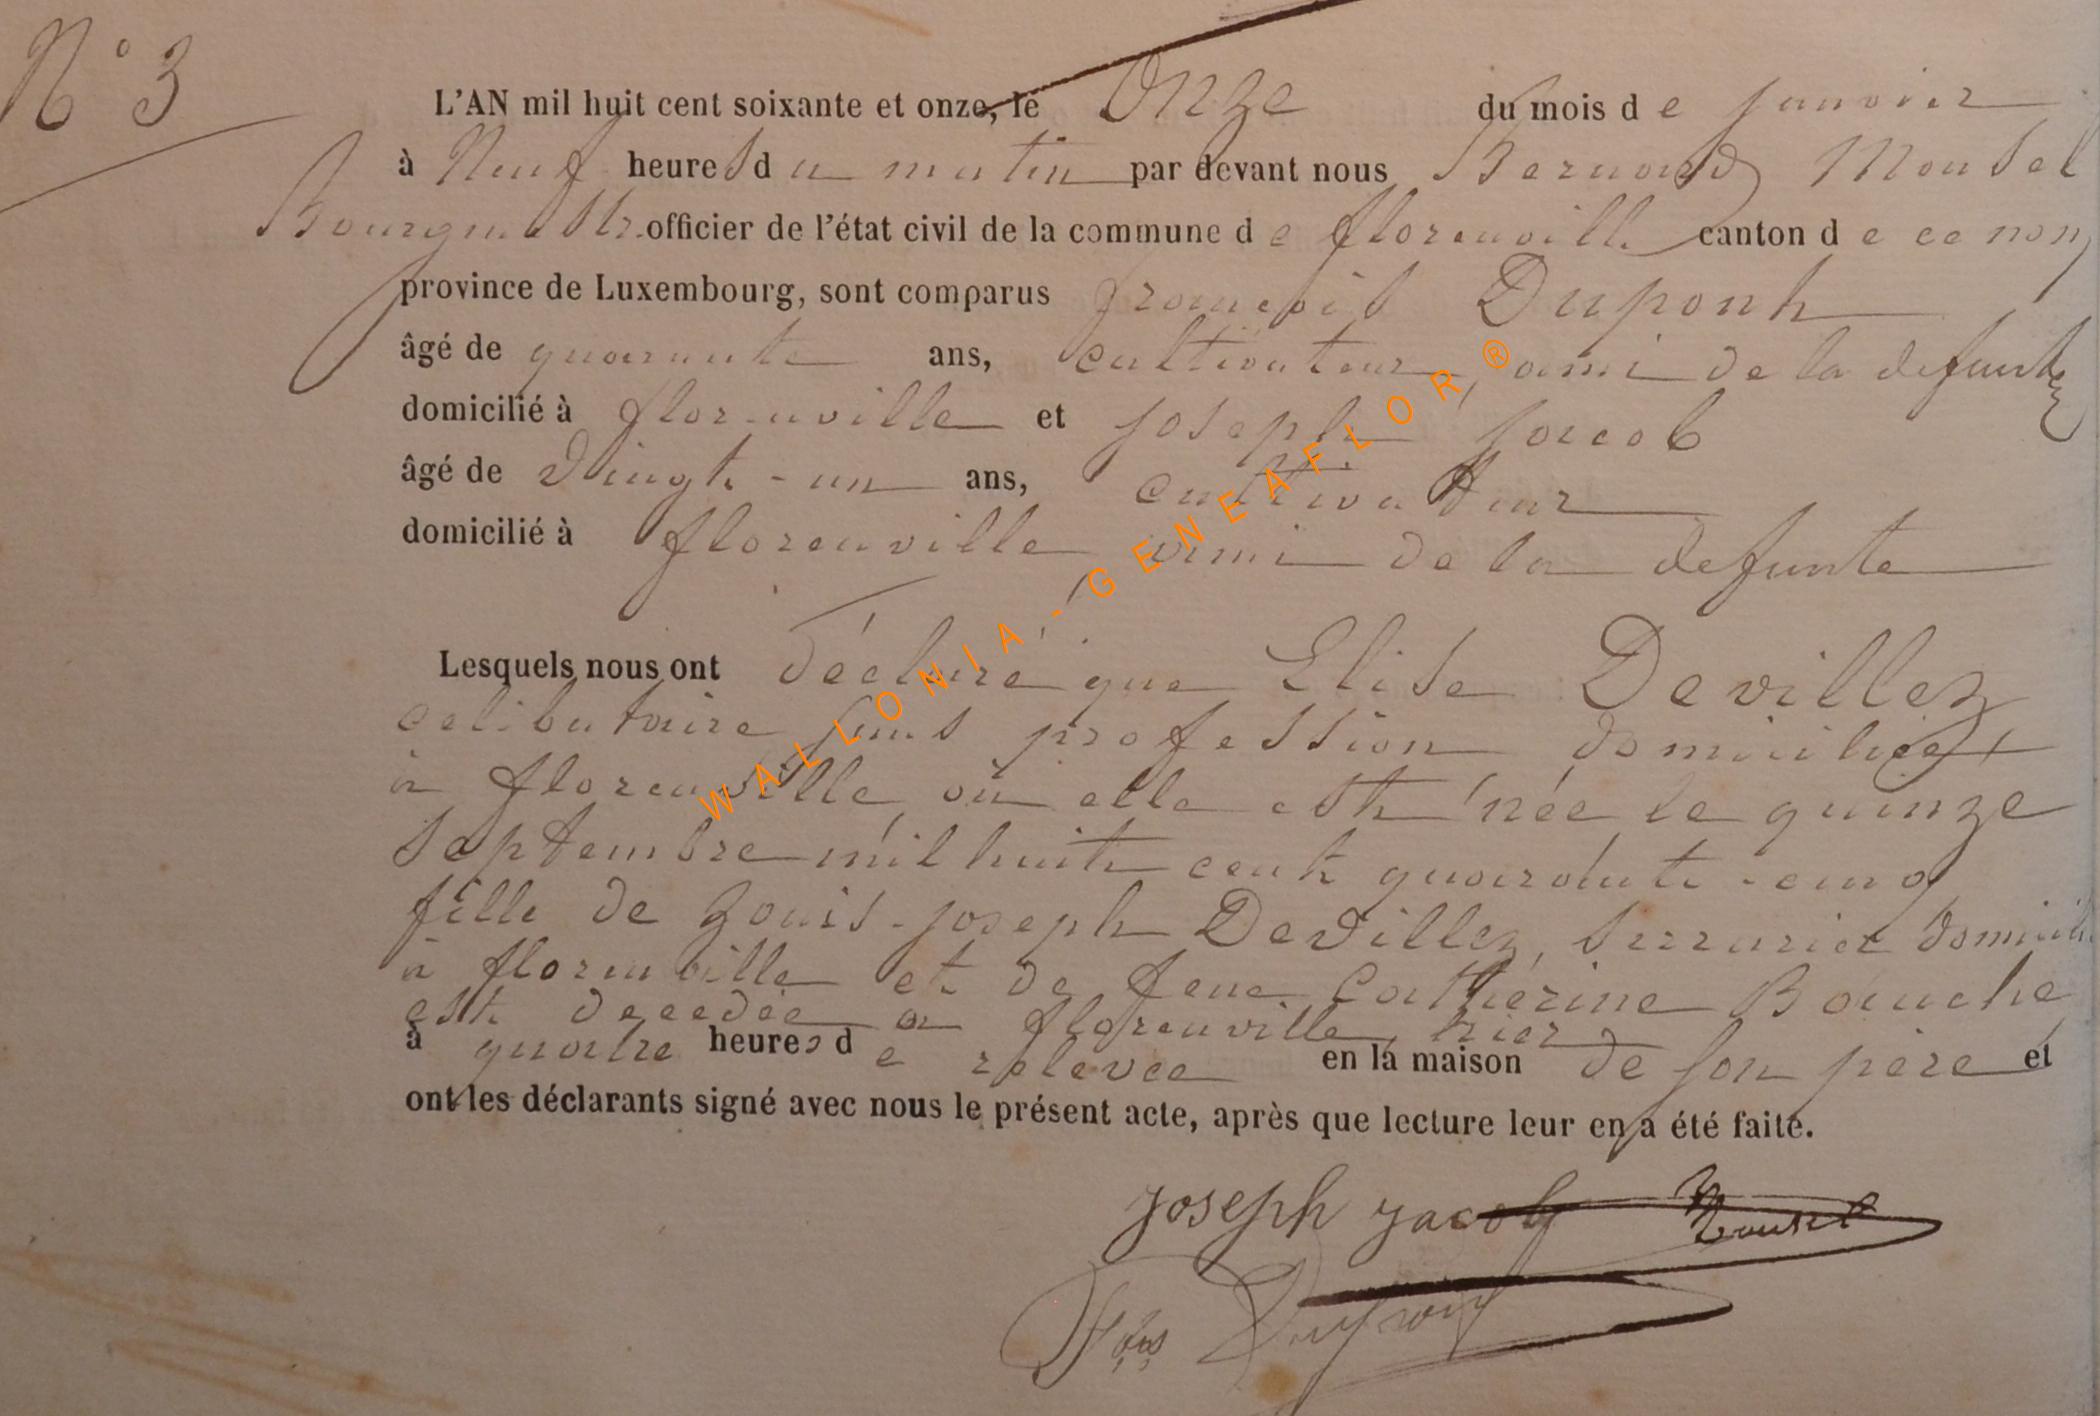 N° 3
L'AN mil huit cent soixante et onze, le Onze du mois de janvier
à Neuf heures du matin par devant nous Bernard Mousel
Bourgmestr. officier de l'état civil de la commune de florenville canton de ce nom
province de Luxembourg, sont comparus françois Dupont
âgé de quarante ans, cultivateur, ami de la defunte
domicilié à florenville et joseph jacob
âgé de vingt-un ans, cultivateur
domicilié à florenville, ami de la defunte
Lesquels nous ont déclaré que Elise Devillez
celibataire sans profession domiciliée
à florenville où elle est née le quinze
septembre mil huit cent quarante-cinq
fille de Louis-joseph Devillez, serrurier domicilié
à florenville et de feue Catherine Bouché
est decedée a florenville, hier
à quatre heures de relevée en la maison de son père et
ont les déclarants signé avec nous le présent acte, après que lecture leur en a été faite.
joseph jacob Mousel
Fçois Dupont
WALLONIA-GENEAFLOR®